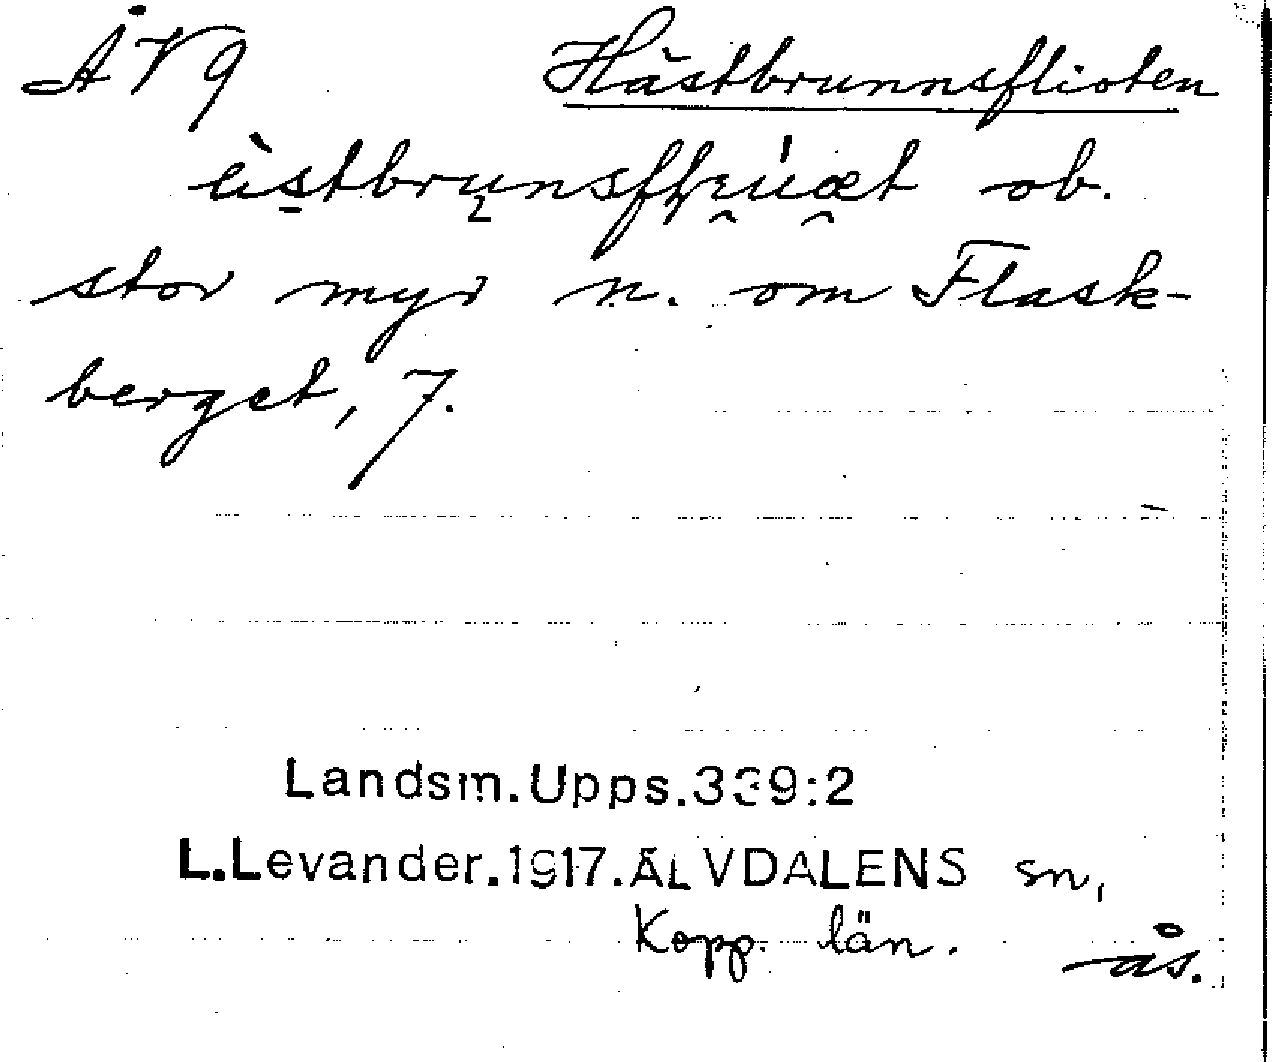 ÅV9 Hästbrunnsflioten
ob.
stor myr n. om Flask-
berget, 7.
Landsm.Upps.339:2
L.Levander.1917.ÄLVDALENS sn,
Kopp. län.
ås.